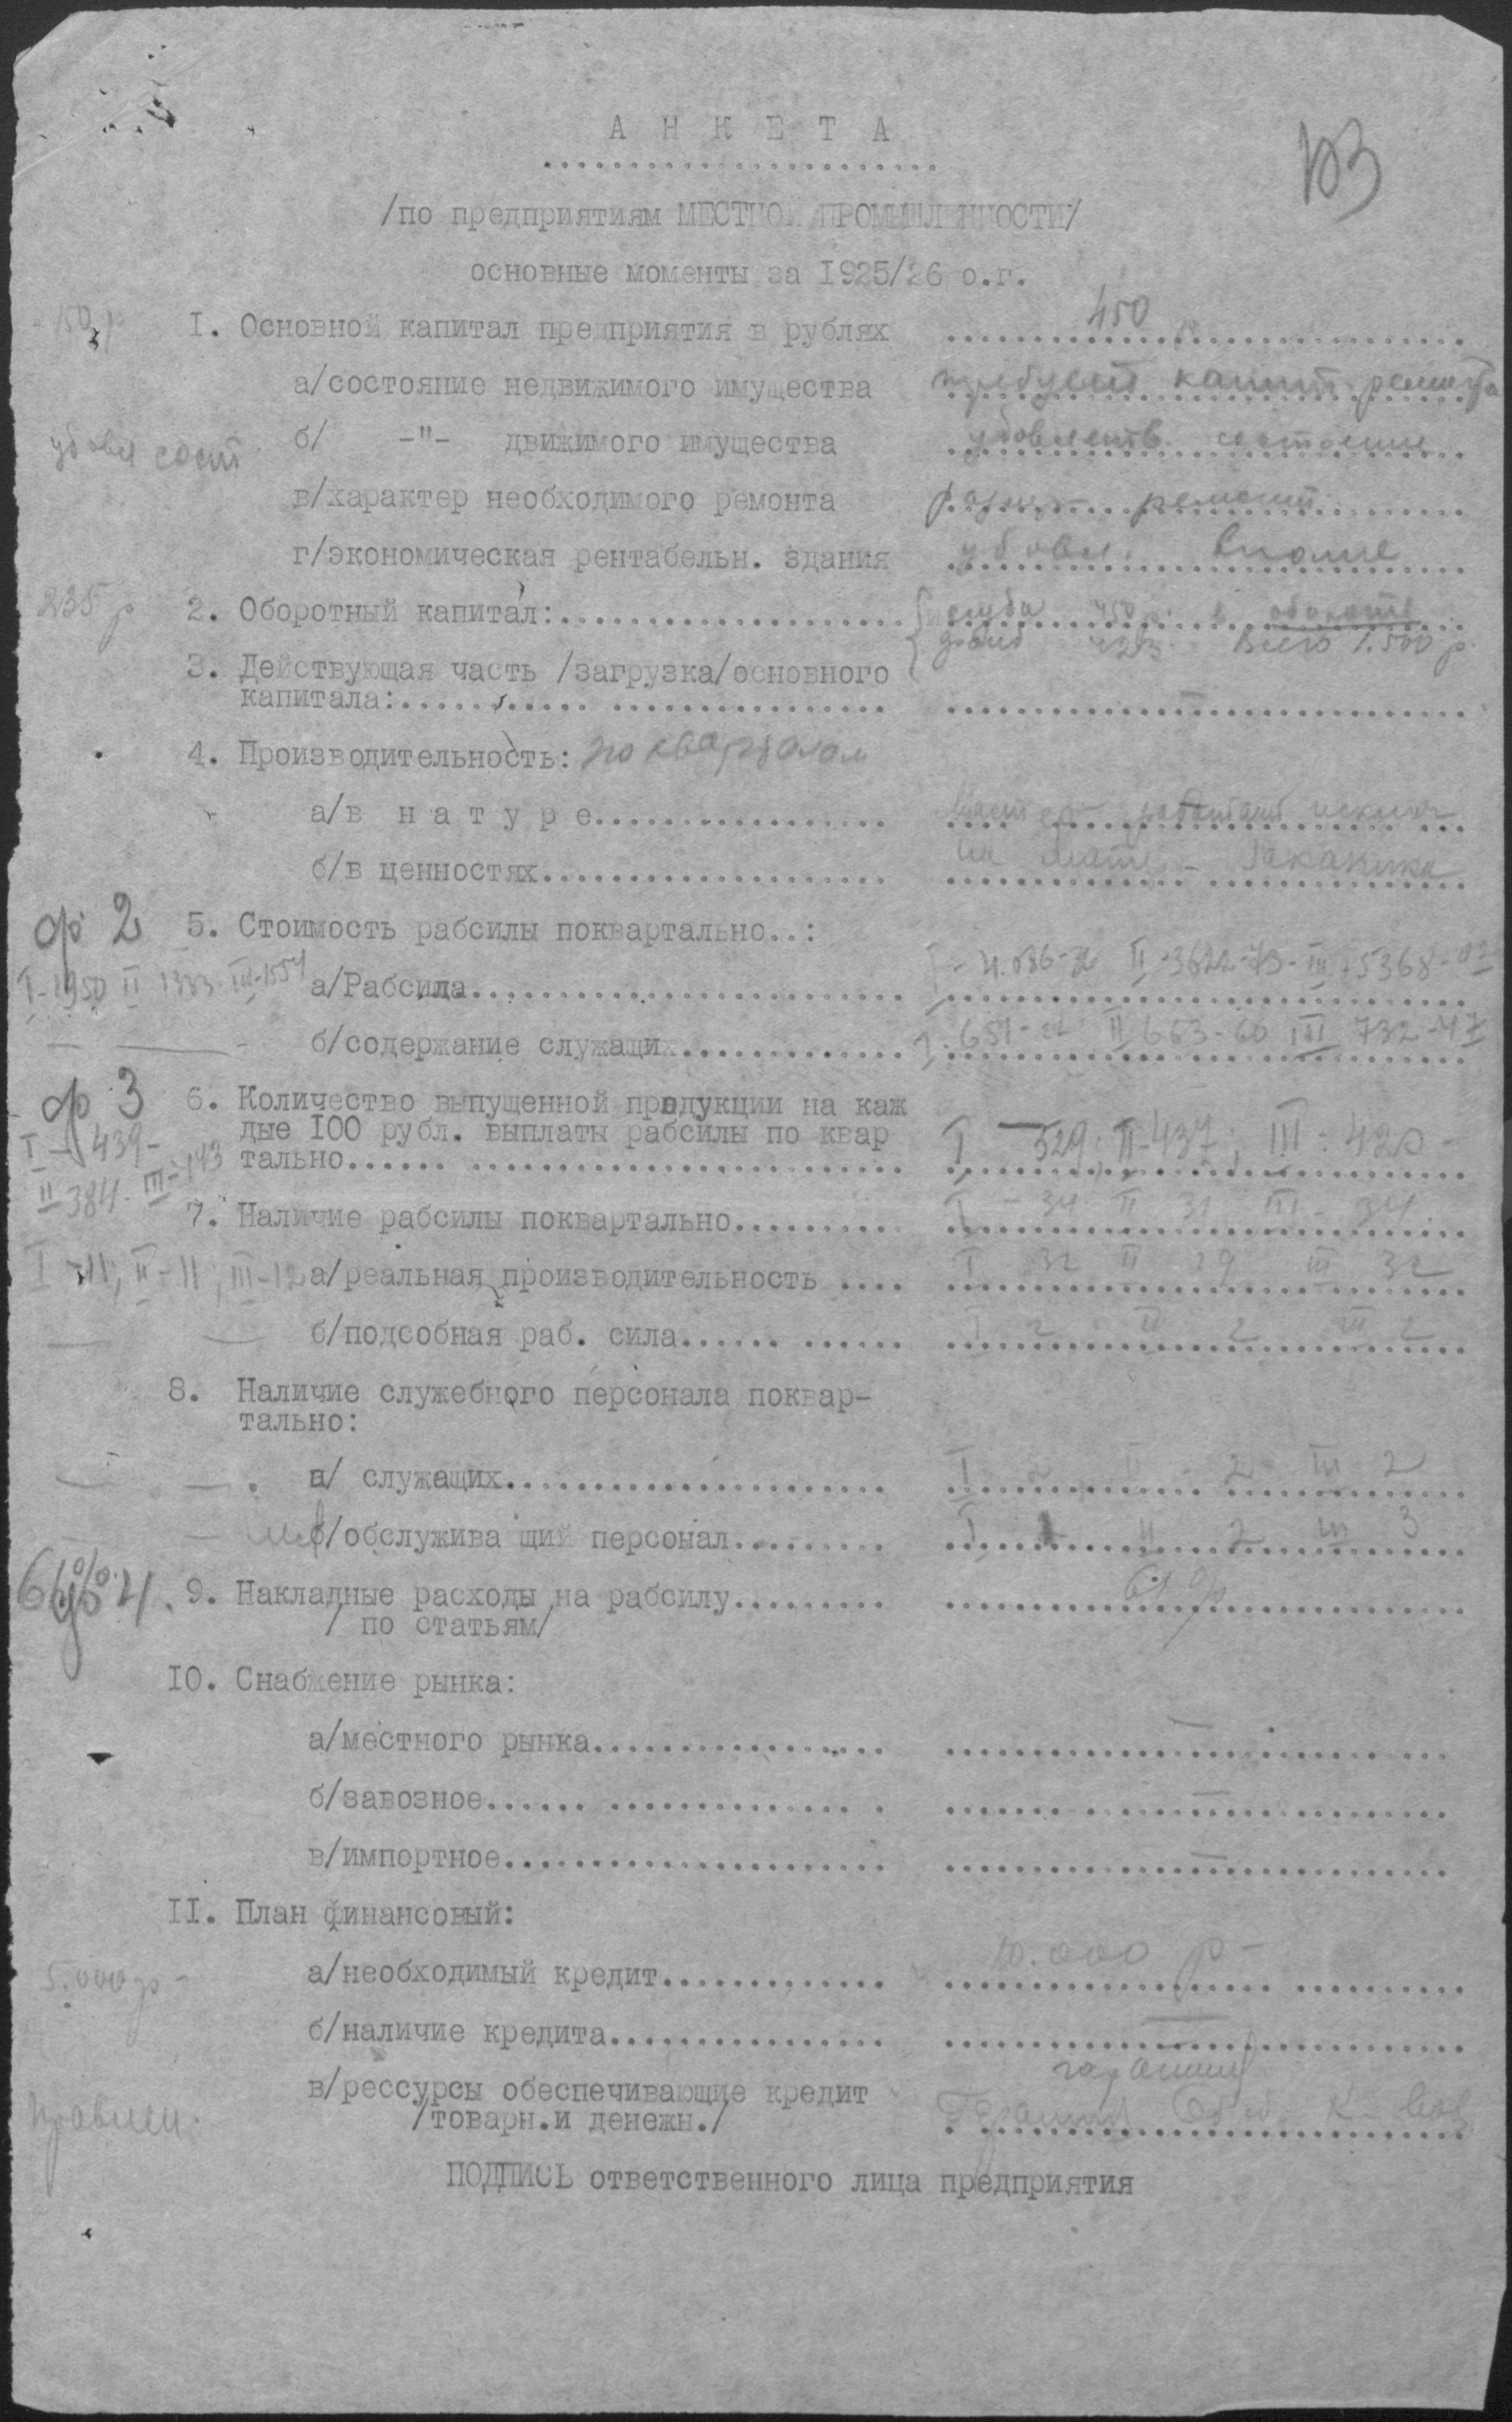 А Н К Е Т А
103
/по предприятиям МЕСТНОЙ ПРОМЫШЛЕННОСТИ/
основные моменты за 1925/26 о.г.
150 р
I. Основной капитал предприятия в рублях 450
а/состояние недвижимого имущества требует капит. ремонта
удовл сост
б/ -"- движимого имущества удовлетв. состояние
в/характер необходимого ремонта ремонт
г/экономическая рентабельн. здания удовл. вполне
235 р
2. Оборотный капитал: ссуда 450 р. в обороте
фонд Всего 1.500 р.
3. Действующая часть /загрузка/основного
капитала: —
4. Производительность: по кварталам
а/в н а т у р е работает исключ
б/в ценностях заказчика
ф 2
5. Стоимость рабсилы поквартально..:
I-1950 II 1333 III-1554
а/Рабсила II-3622-73-III-5368-02
— —
б/содержание служащих I. 651- II 663-60 III 732-47
ф 3
6. Количество выпущенной продукции на каж
дые I00 рубл. выплаты рабсилы по квар
тально I — 529; II-437; III-420-
I-439-
II-384- III-143
7. Наличие рабсилы поквартально I - 34 II 31 III - 34
I-11; II-11; III-12
а/реальная производительность I 32 II 29 III 32
— —
б/подсобная раб. сила I 2 II 2 III 2
8. Наличие служебного персонала поквар-
тально:
— —
а/ служащих I 2 II - 2 III 2
— —
б/обслужива щий персонал I 1 II 2 III 3
ф 4
9. Накладные расходы на рабсилу 61 %
/ по статьям/
I0. Снабжение рынка:
а/местного рынка —
б/завозное —
в/импортное —
II. План финансовый:
5.000 р -
а/необходимый кредит 10.000 р -
б/наличие кредита —
гарантии
в/рессурсы обеспечивающие кредит Гарантия
/товарн.и денежн./
правлен.
ПОДПИСЬ ответственного лица предприятия